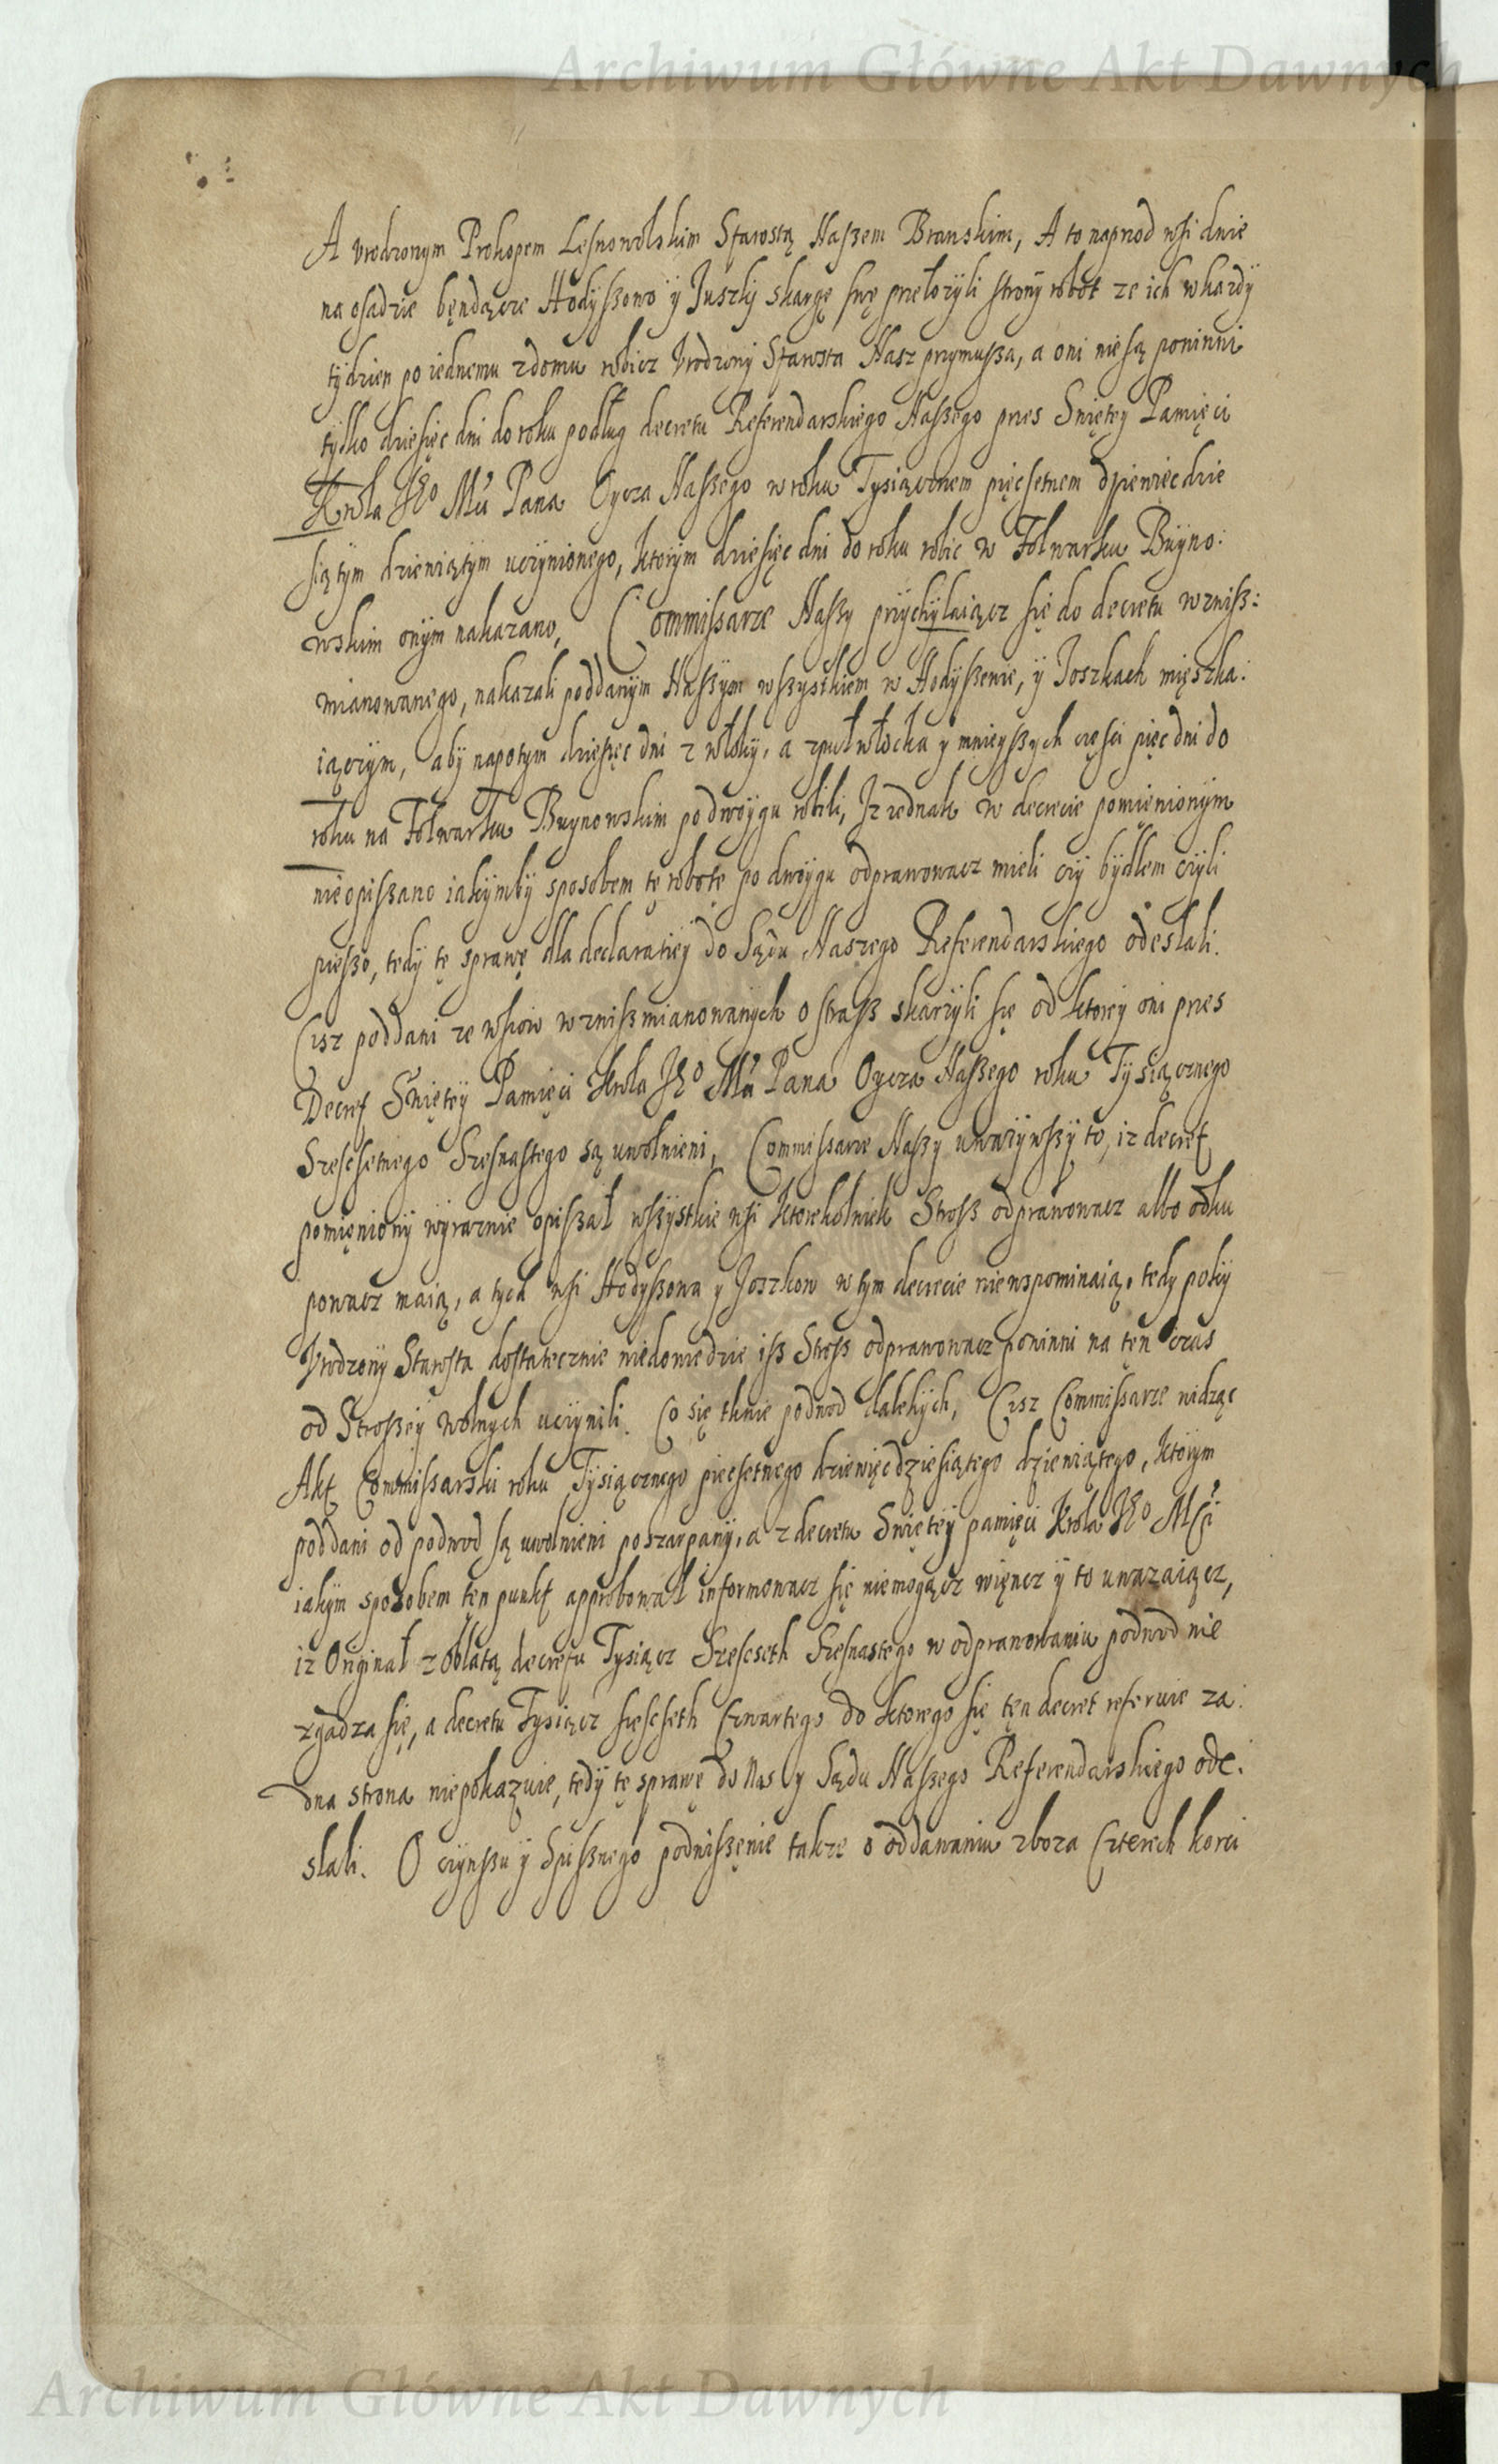 Archiwum Główne Akt Dawnych
A vrodzonym Prokopem Lesnowolskim Starostą Naßem Branskim, A to naprzod wsi dwie
na osadzie bęndącze Hodyßowo ÿ Juszkÿ skargę swę przełozÿli stronÿ robot ze ich w kazdÿ
tÿdzien po iednemu z domu robicz Vrodzonÿ Starosta Nasz przymußa, a oni nie są powinni
tÿlko dziesięc dni do roku podług decretu Referendarskiego Naßego przes Swiętey Pamięci
Krola Jeo Mci Pana Oycza Naßego w roku Tysiącznem pięcsetnem dziewięcdzie
siątÿm dziewiątÿm uczÿnionego, ktorÿm dziesięc dni do roku robic w Folwarku Buÿno:
wskim onÿm nakazano, Commissarze Naßy przÿchÿlaiącz się do decretu wzniß:
mianowanego, nakazali poddanÿm Naßÿm wßÿstkiem w Hodÿßewie, ÿ Joszkach mięszka:
iączÿm, abÿ napotÿm dziesięc dni z włokÿ, a z puł włoczka y mnieÿßÿch częsci pięc dni do
roku na Folwarku Buynowskim po dwoÿgu robili, Jz iednak w decrecie pomięnionÿm
nie opißano iakÿmbÿ sposobem tę robotę po dwoÿgu odprawowacz mieli czÿ bÿdłem czÿli
pießo, tedÿ tę sprawę dla declaratieÿ do Sądu Naszego Referendarskiego odeslali.
Cisz poddani ze wsiow wzniß mianowanÿch o straß skarzÿli się od ktoreÿ oni przes
Decret Swięteÿ Pamięci Krola Jeo Mci Pana Oycza Naßego roku Tÿsiącznego
Szescsetnego Szesnastego są uwolnieni, Commissarze Naßy uwazÿwßÿ to, iz decret
pomięnionÿ wÿraznie opißał wßÿstkie wsi ktorekolwiek Stroß odprawowacz albo odku
powacz maią, a tych wsi Hodyßowa y Joszkow w tym decrecie nie wspominaią, tedy pokÿ
Vrodzonÿ Starosta dostatecznie niedowiedzie iß Stroß odprawowacz powinni na ten czas
od Stroßeÿ wolnÿch uczÿnili. Co się tknie podwod dalekÿch, Cisz Commissarze widząc
Akt Commissarski roku Tÿsiącznego piecsetnego dziewięcdziesiątego dziewiątego, ktorÿm
poddani od podwod są uwolnieni poszarpanÿ, a z decretu Swięteÿ pamięci Krola Jeo Mci
iakÿm sposobem ten punkt approbował informowacz się niemogącz więncz ÿ to uwazaiącz,
iz Originał z oblatą decretu Tysiącz Szescseth Szesnastego w odprawowaniu podwod nie
zgadza się, a decretu Tysiącz szescseth Czwartego do ktorego się ten decret referuie za:
dna strona niepokazuie, tedÿ tę sprawę do Nas y Sądu Naßego Referendarskiego ode:
slali. O czÿnßu ÿ Spißnego podnißęnie takze o oddawaniu zboza Czterech korci
Archiwum Główne Akt Dawnych